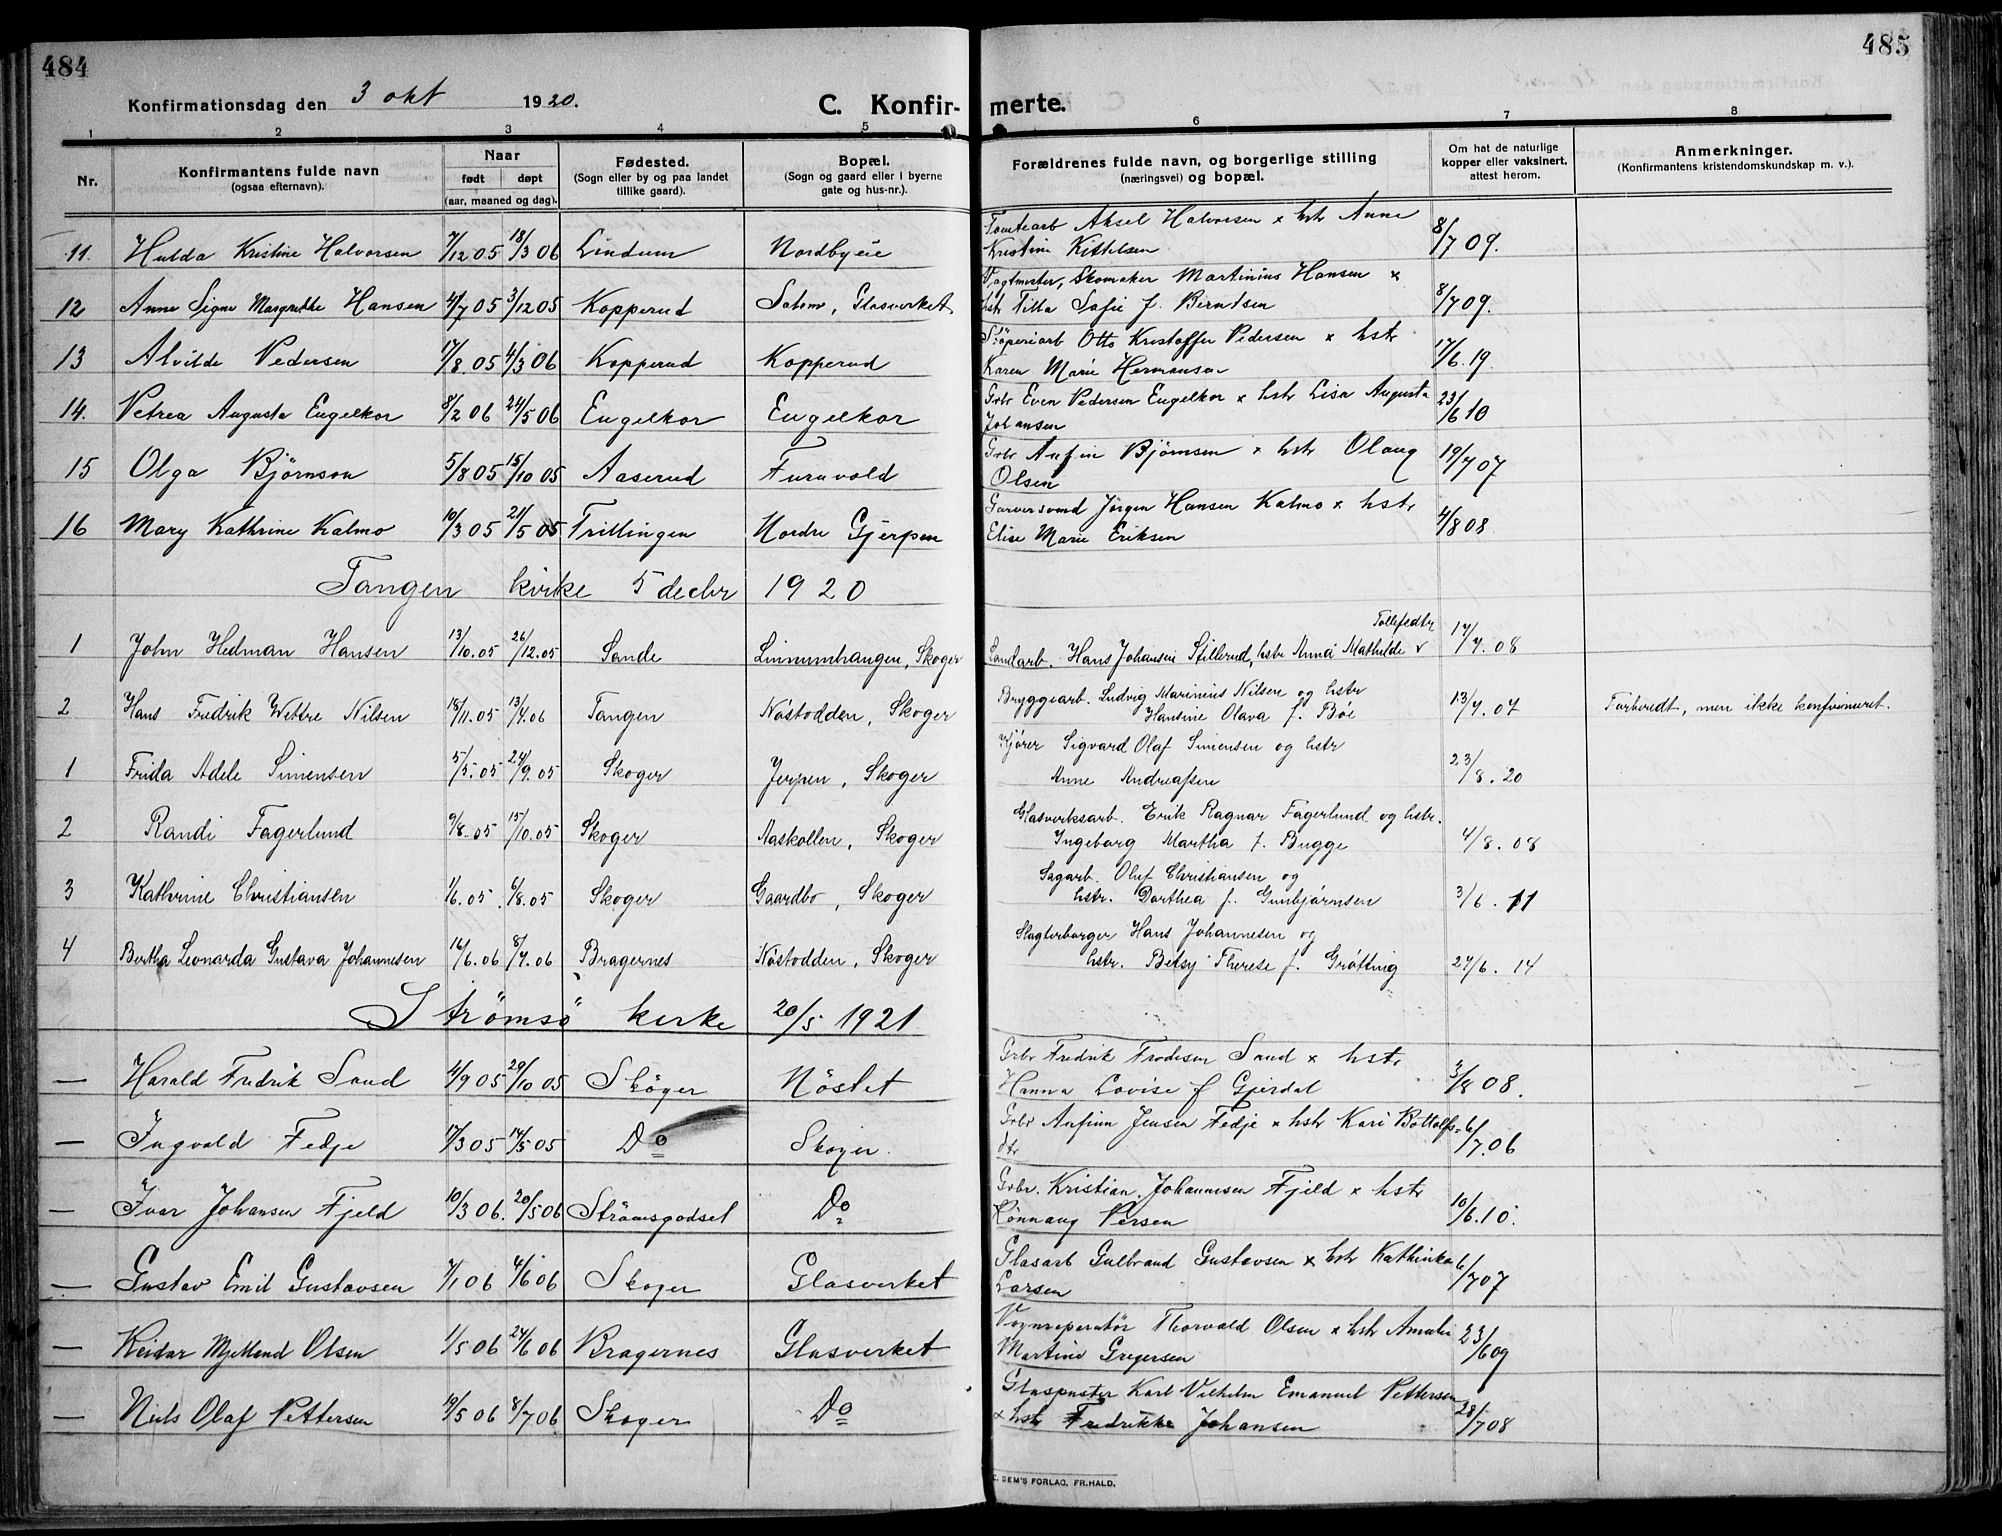 484
485
Konfirmationsdag den 3 okt 1920.
C. Konfir-
merte.
1 2 3 4 5 6 7 8
Nr.
Konfirmantens fulde navn
(ogsaa efternavn).
Naar
født døpt
(aar, maaned og dag).
Fødested.
(Sogn eller by og paa landet
tillike gaard).
Bopæl.
(Sogn og gaard eller i byerne
gate og hus-nr.).
Forældrenes fulde navn, og borgerlige stilling
(næringsvei) og bopæl.
Om hat de naturlige
kopper eller vaksinert,
attest herom.
Anmerkninger.
(Konfirmantens kristendomskundskap m. v.).
Tomtearb Aksel Halvorsen x hstr Anne
11. Hulda Kristine Halvorsen 7/12 05 18/3 06 Lindum Nordbyeie Kristine Kittelsen 8/7 09.
Vagtmester, Skomaker Martinius Hansen x
12 Anne Signe Margrethe Hansen 4/7 05 3/12 05 Kopperud Glasverket hstr Tilla Sofie f. Berntsen 8/7 09.
Støperiarb Otto Kristoffer Pedersen x hstr
13 Alvilde Pedersen 17/8.05 4/3 06 Kopperud Kopperud Karen Marie Hermansen 17/6.19.
Gbr Even Pedersen Engelkor x hstr Lisa Augusta
14. Petrea Augusta Engelkor 8/2 06 24/5 06 Engelkor Engelkor Johansen 23/6 10
Gbr Anfin Bjørnsen x hstr Olaug
15 Olga Bjørnson 5/8 05 15/10 05 Aaserud Furuvold Olsen 19/7 07
Garversvend Jørgen Hansen Kalmo x hstr
16 Mary Kathrine Kalmo 10/3 05 21/5 05 Trillingen Nordre Gjerpen Elise Marie Eriksen 4/8 08
Tangen kirke 5 decbr 1920
Tollefsdtr
1 John Hedman Hansen 13/10.05 26/12.05 Sande Linnumhaugen, Skoger Landarb. Hans Johansen Stillerud, hstr Anna Mathilde 17/7.08
Bryggearb. Ludvig Marinius Nilsen og hstr
2 Hans Fredrik Wettre Nilsen 18/11.05 13/4.06 Tangen Nøstodden, Skoger Hansine Olava f. Bøe 13/7.07 Forberedt, men ikke konfirmeret.
Kjører Sigvard Olaf Simensen og hstr
1 Frida Adele Simensen 5/5.05 24/9.05 Skoger Jerpen, Skoger Anne Andreassen 23/8.20
Glasverksarb. Erik Ragnar Fagerlund og hstr.
2 Randi Fagerlund 9/8.05 15/10.05 Skoger Aaskollen, Skoger Ingeborg Martha f. Bugge 4/8.08
Sagarb. Oluf Christiansen og
3 Kathrine Christiansen 1/6.05 6/8.05 Skoger Gaardbo, Skoger hstr. Dorthea f. Gunbjørnsen 3/6.11
Slagterborger Hans Johannesen og
4 Bertha Leonarda Gustava Johannesen 16/6.06 8/7.06 Bragernes Nøstodden, Skoger hstr. Betsy Therese f. Grøtting 27/6.14
Strømsø kirke 20/5 1921
Gbr Fredrik Frodesen Sand x hstr
— Harald Fredrik Sand 4/9 05 29/10 05 Skoger Nøstet Hanna Lovise f Gjerdal 3/8 08.
Gbr Anfinn Jensen Fedje x hstr Kari Bottolfs-
— Ingvald Fedje 17/3 05 14/5 05 Do Skoger. dtr 6/7.06
Gbr. Kristian Johannesen Fjeld x hstr
— Ivar Johansen Fjeld 10/3 06. 20/5 06 Strømsgodset Do Rønnaug Persen 10/6.10.
Glasarb Gulbrand Gustavsen x hstr Kathinka
— Gustav Emil Gustavsen 7/1 06 4/6 06 Skoger Glasverket Larsen 6/7 07
Vognreparatør Thorvald Olsen x hstr Amalie
— Reidar Mjelland Olsen 1/5 06 24/6 06 Bragernes Glasverket Martine Gregersen 23/6 09
Glaspuster Karl Vilhelm Emanuel Pettersen
— Niels Olaf Pettersen 19/5 06 8/7 06 Skoger Do x hstr Fredrikke Johansen 28/7 08
SEM'S FORLAG, FR. HALD.